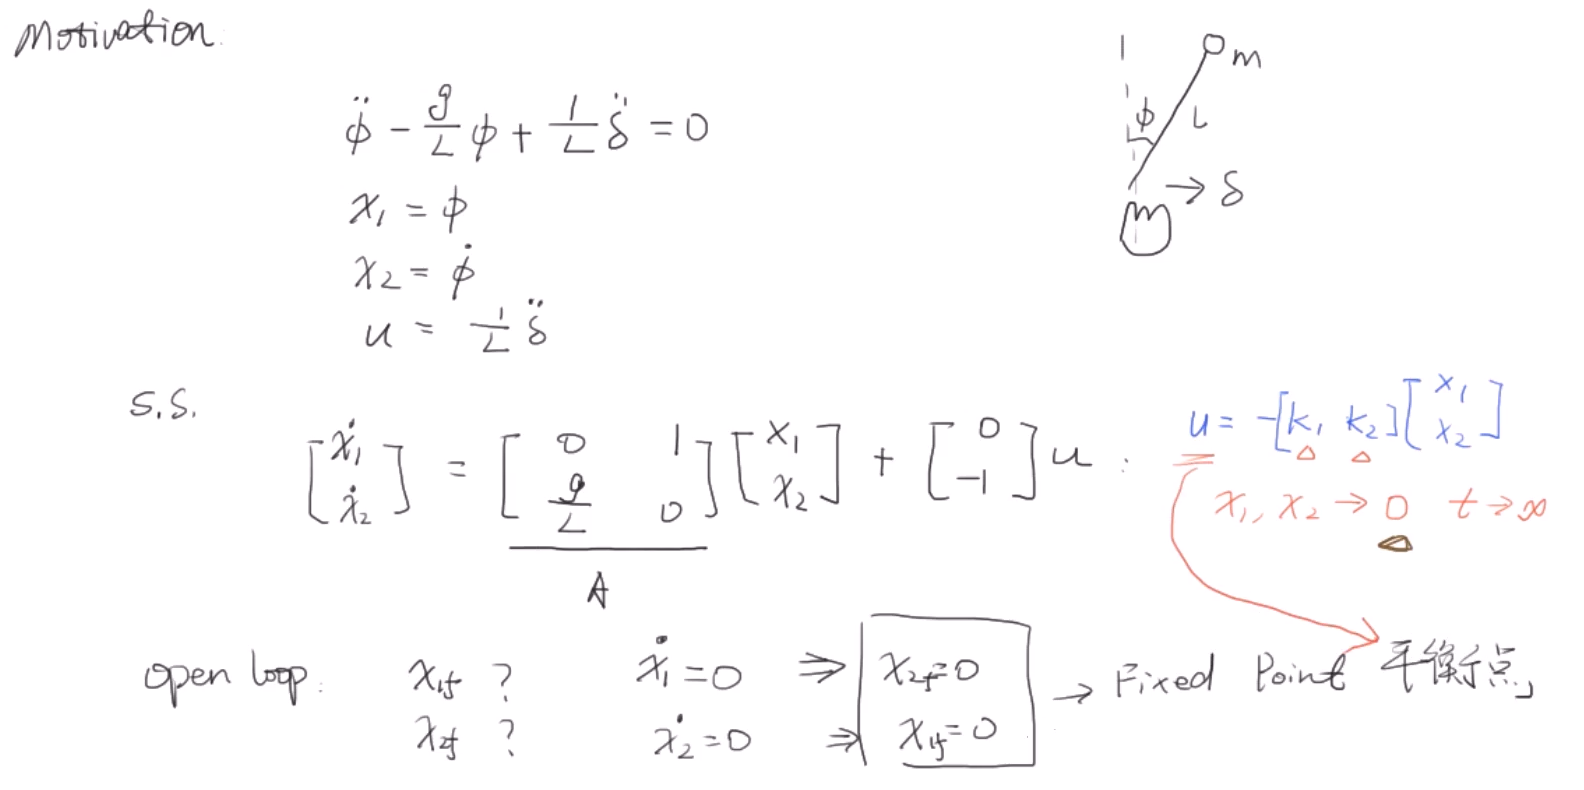 Motivation:
m
φ L
m → δ
φ̈ - g/L φ + 1/L δ̈ = 0
x₁ = φ
x₂ = φ̇
u = 1/L δ̈
S.S.
[ẋ₁ ẋ₂] = [0 1 g/L 0] [x₁ x₂] + [0 -1] u :
A
u = -[k₁ k₂] [x₁ x₂]
x₁, x₂ → 0 t → ∞
open loop: x₁f ? ẋ₁ = 0 ⇒ x₂f = 0
x₂f ? ẋ₂ = 0 ⇒ x₁f = 0
→ Fixed Point 平衡点,